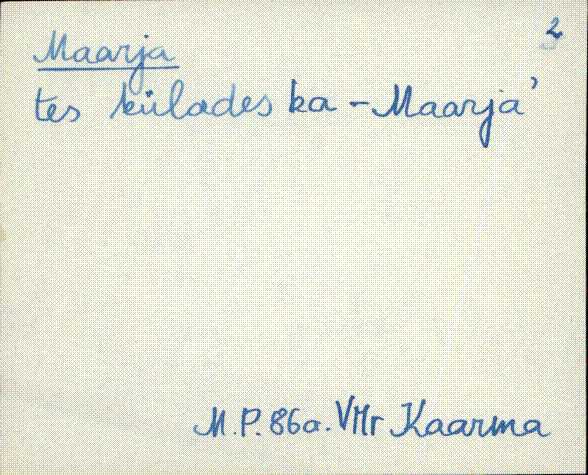 2
Maarja
tes külades ka - Maarja'
M.P. 86a. VMr Kaarma